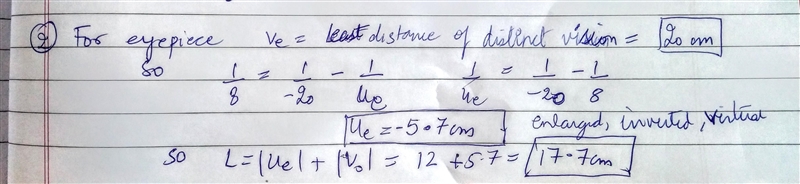 ② For eyepiece ve = least distance of distinct vision = 20 cm
so 1/8 = 1/-20 - 1/ue 1/ue = 1/-20 - 1/8
ue = -5.7cm enlarged, inverted, virtual
so L = |ue| + |vo| = 12 + 5.7 = 17.7cm